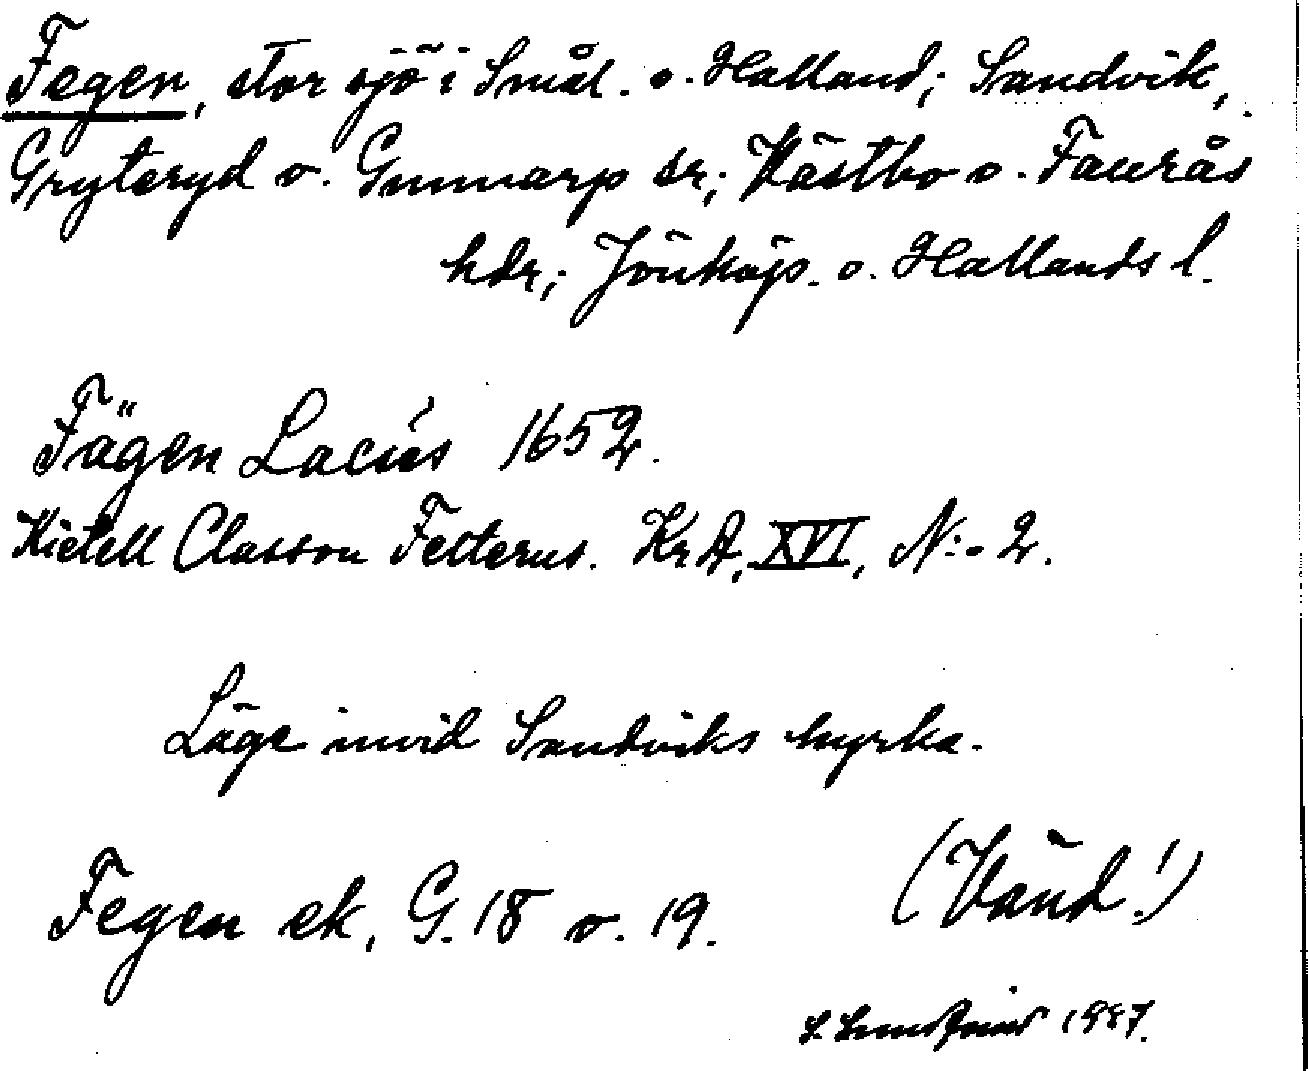 Fegen, stor sjö i Smål. o. Halland; Sandvik,
Gryteryd o. Gunnarp sr; Västbo o. Faurås
hdr; Jönköp. o. Hallands l.
Fägen Lacus 1652.
Kietell Classon Felterus. KrA, XVI, N:o 2.
Läge invid Sandviks kyrka.
Fegen ek, G. 18 o. 19.
(Vänd!)
1937.